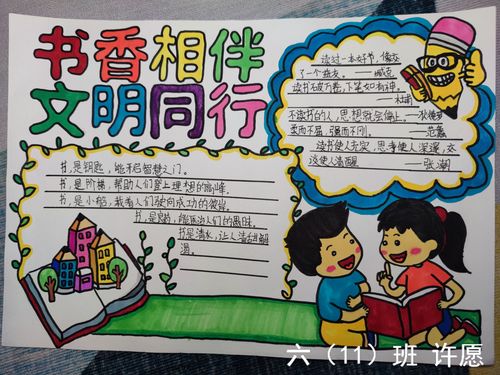 书香相伴
文明同行
读过一本好书，像交
了一个益友。——臧克
读书破万卷，下笔如有神。
——杜甫
不读书的人，思想就会停止。——狄德罗
柔而不屈，强而不刚。——范蠡
读书使人充实，思考使人深邃，交
谈使人清醒 ——张潮
书，是钥匙，能开启智慧之门。
书，是阶梯，帮助人们登上理想的高峰。
书，是小船，载着人们驶向成功的彼岸。
书，是良药，能医治人们的愚昧。
书是清水，让人清甜解
渴。
六（11）班 许愿